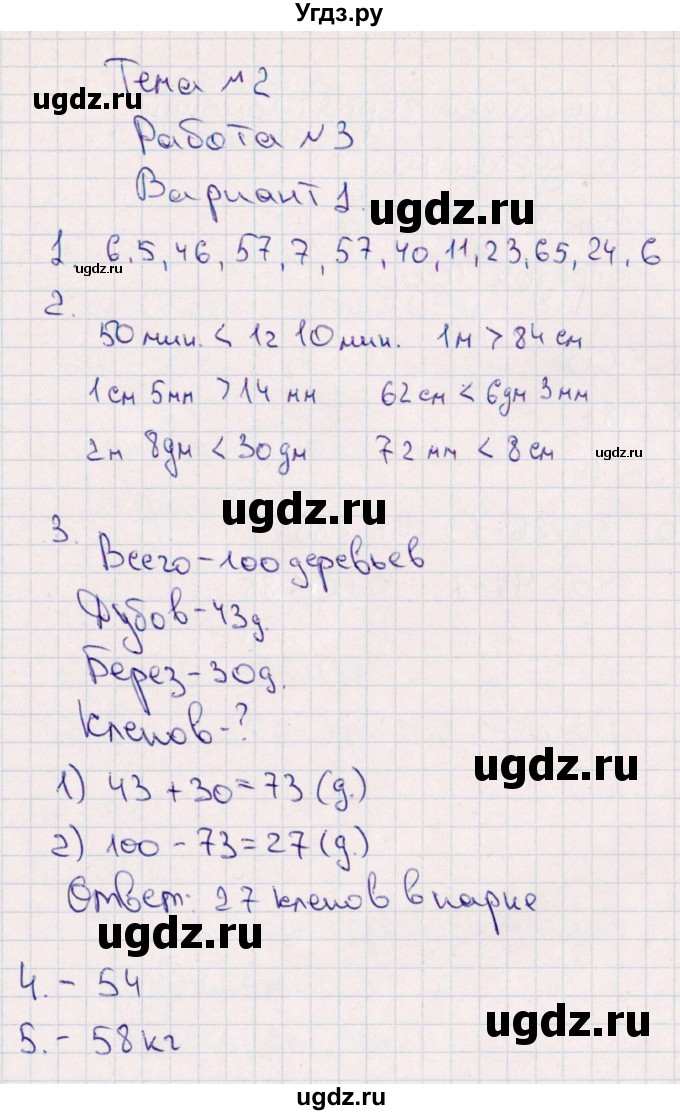 Угдз.ру
Тема №2
ugdz.ru
Работа №3
Вариант 1
ugdz.ru
1 6.5, 46, 57, 7, 57, 40, 11, 23, 65, 24, 6
ugdz.ru
2.
50 мин. < 1г 10 мин. 1м > 84 см
1 см 5мм > 14 мм 62 см < 6дм 3мм
2м 8дм < 30 дм 72 мм < 8 см
ugdz.ru
ugdz.ru
3.
Всего - 100 деревьев
Дубов - 43 д.
Берез - 30 д.
Кленов - ?
ugdz.ru
1) 43 + 30 = 73 (д.)
2) 100 - 73 = 27 (д.)
Ответ: 27 кленов в парке
ugdz.ru
4. - 54
5. - 58 кг
ugdz.ru
ugdz.ru